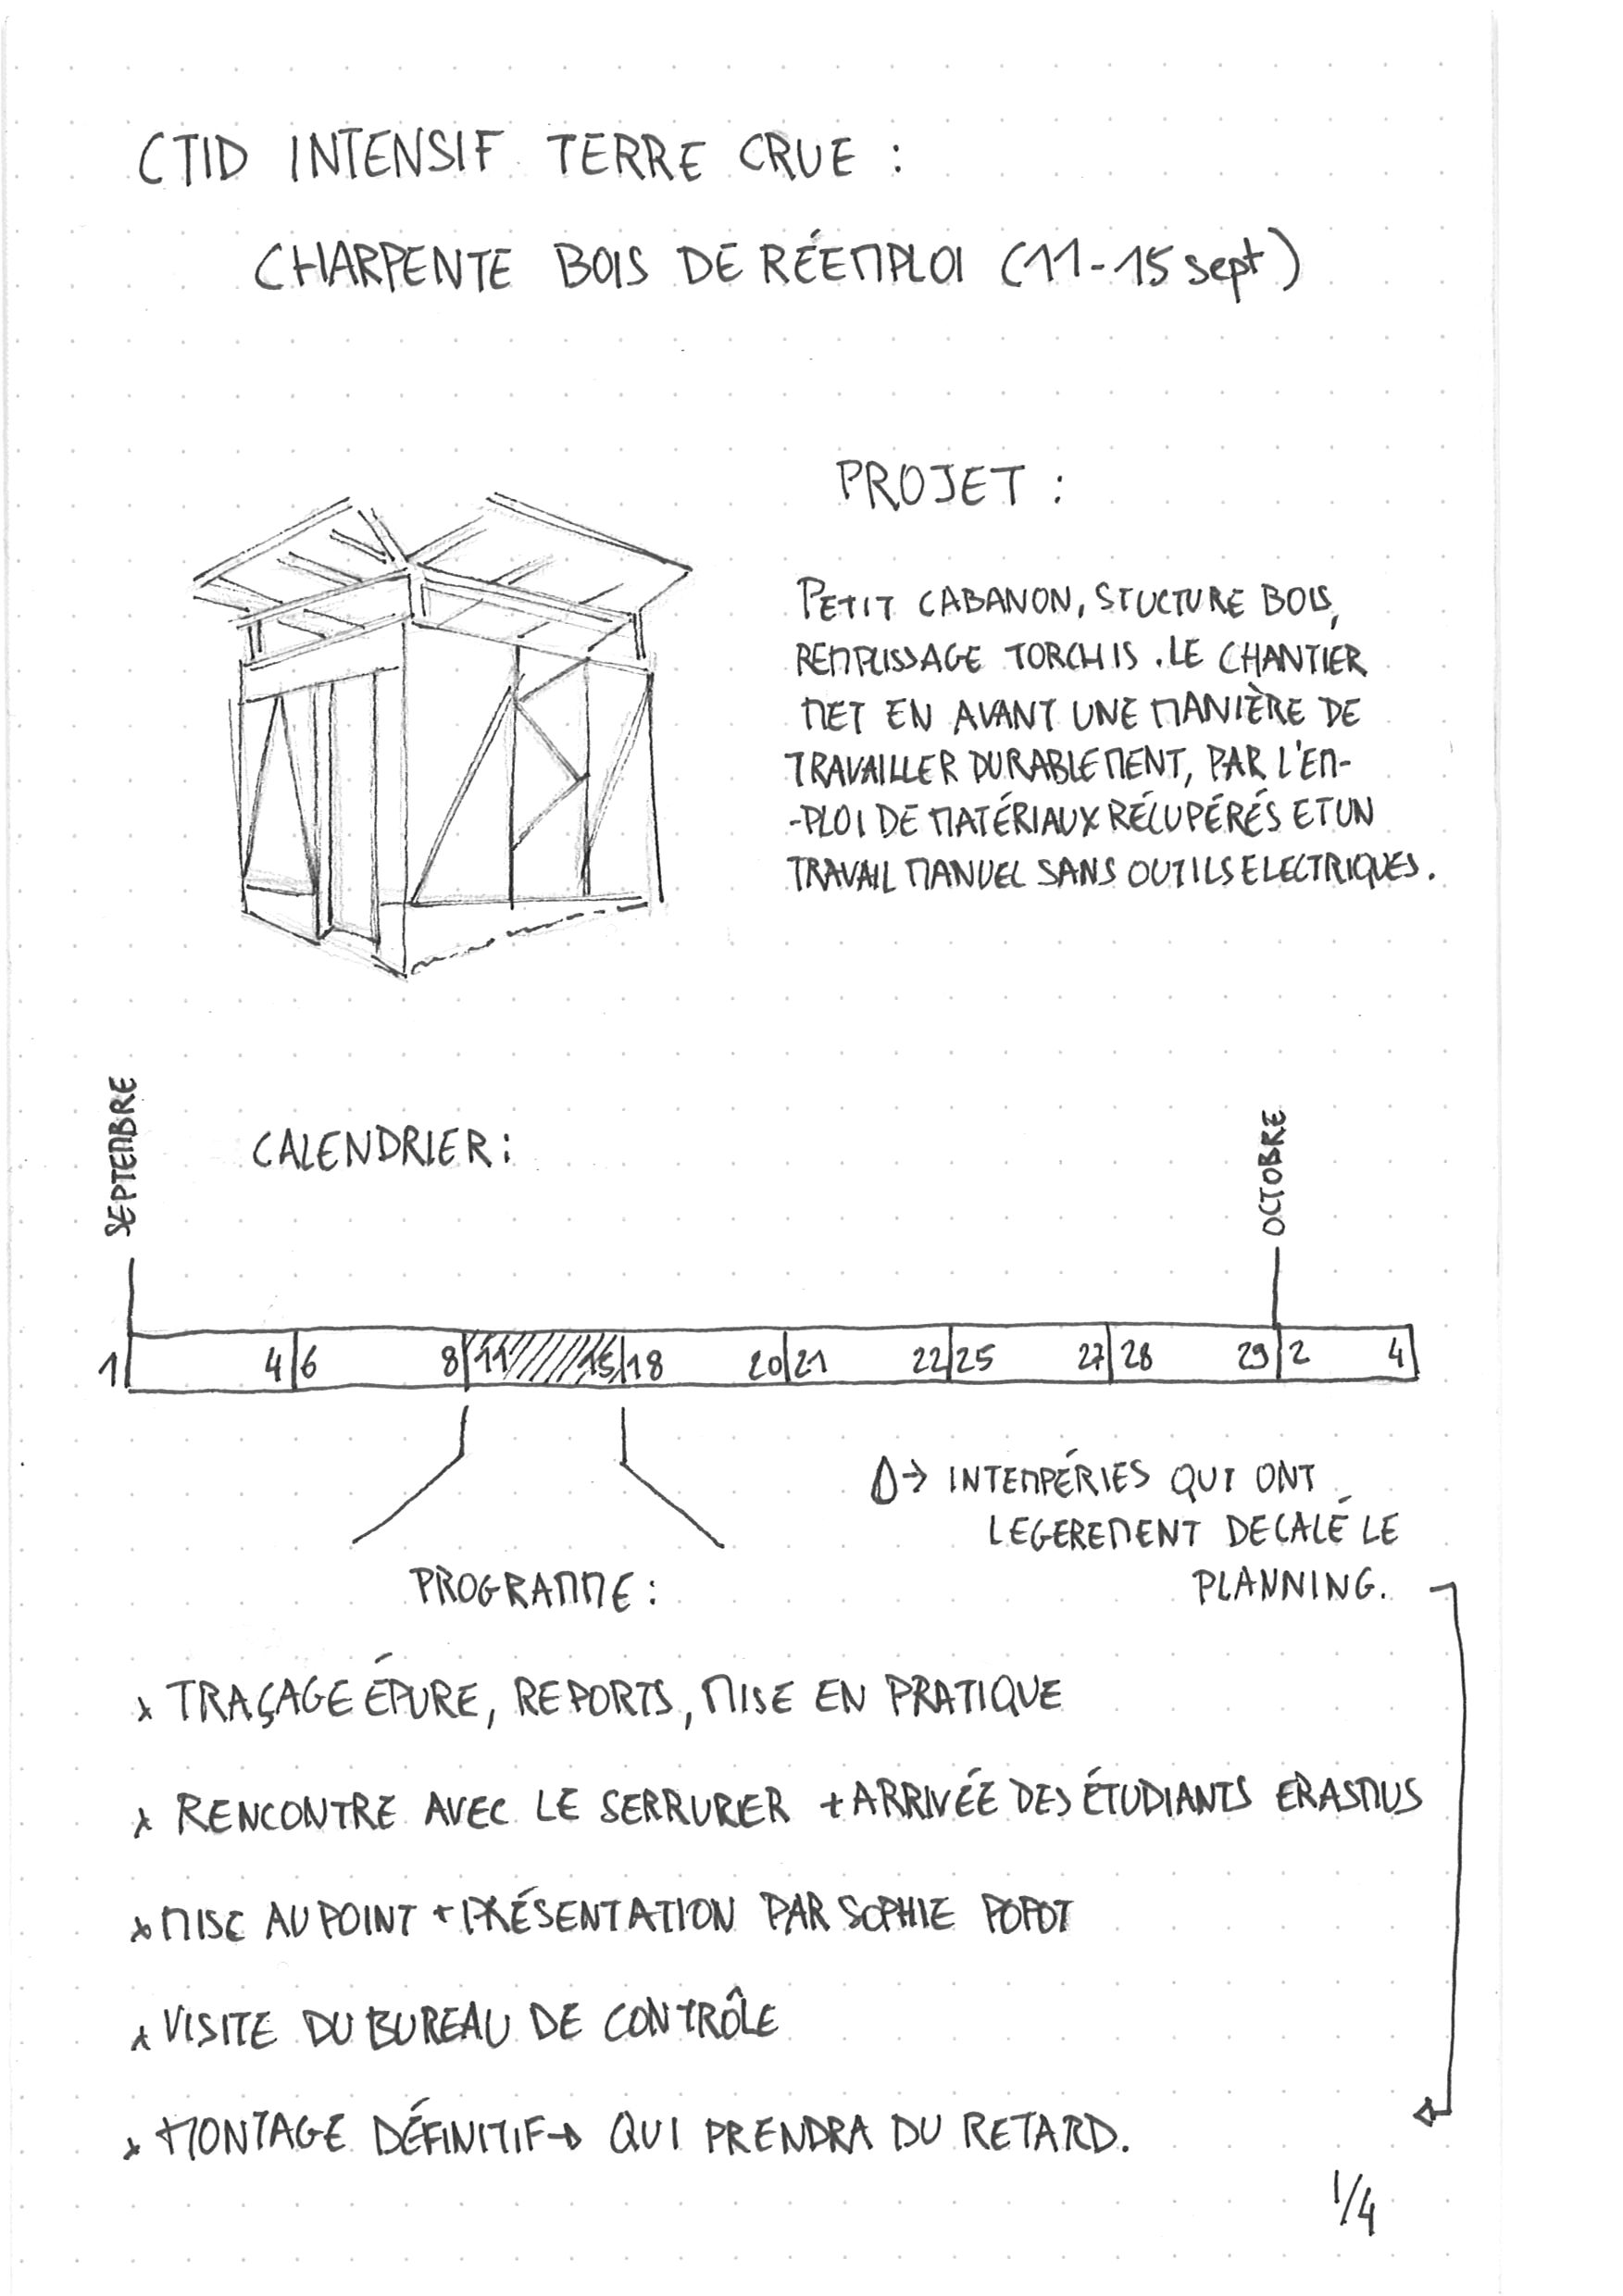 CTID INTENSIF TERRE CRUE :
CHARPENTE BOIS DE RÉEMPLOI (11-15 sept)
PROJET :
PETIT CABANON, STUCTURE BOIS,
REMPLISSAGE TORCHIS. LE CHANTIER
MET EN AVANT UNE MANIÈRE DE
TRAVAILLER DURABLEMENT, PAR L'EM-
-PLOI DE MATÉRIAUX RÉCUPÉRÉS ET UN
TRAVAIL MANUEL SANS OUTILS ELECTRIQUES.
SEPTEMBRE
CALENDRIER :
OCTOBRE
1 4 6 8 11 15 18 20 21 22 25 27 28 29 2 4
→ INTEMPÉRIES QUI ONT
LEGEREMENT DECALÉ LE
PLANNING.
PROGRAMME :
x TRAÇAGE ÉPURE, REPORTS, MISE EN PRATIQUE
x RENCONTRE AVEC LE SERRURIER + ARRIVÉE DES ÉTUDIANTS ERASMUS
x MISE AU POINT + PRÉSENTATION PAR SOPHIE POPOT
x VISITE DU BUREAU DE CONTRÔLE
x MONTAGE DÉFINITIF → QUI PRENDRA DU RETARD.
1/4